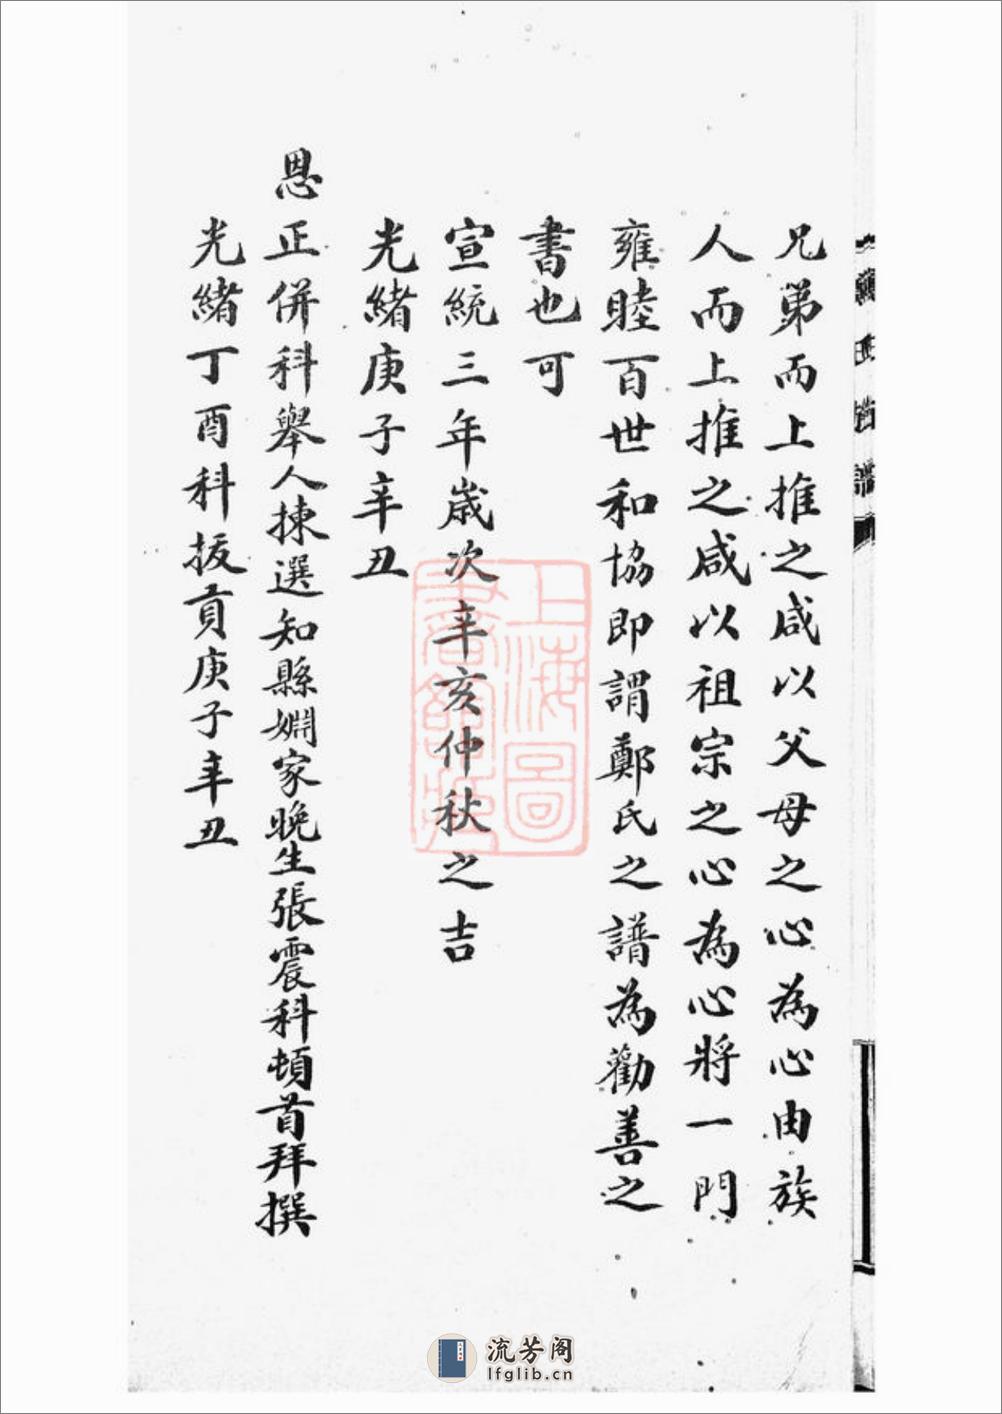 兄弟而上推之咸以父母之心為心由族
人而上推之咸以祖宗之心為心將一門
雍睦百世和協即謂鄭氏之譜為勸善之
書也可
宣統三年歲次辛亥仲秋之吉
光緒庚子辛丑
恩正併科舉人揀選知縣姻家晚生張震科頓首拜撰
光緒丁酉科拔貢庚子辛丑
上海圖
書館藏
流芳阁
lfglib.cn